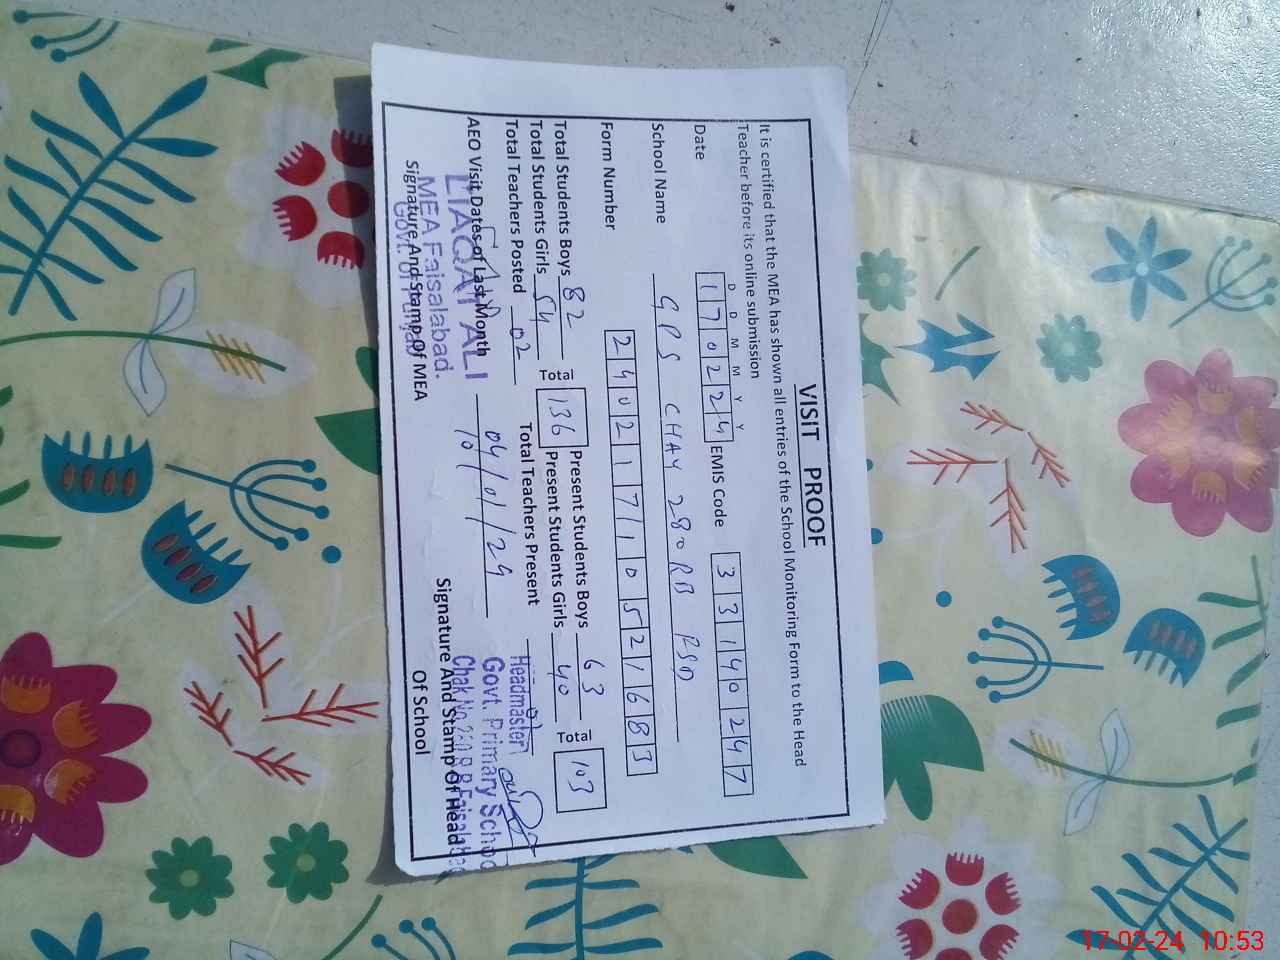 VISIT PROOF
It is certified that the MEA has shown all entries of the School Monitoring Form to the Head
Teacher before its online submission
D D M M Y Y
Date 170224 EMIS Code 33140247
School Name GPS CHAK 280 RB FSD
Form Number 24021710521683
Total Students Boys 82 Present Students Boys 63
Total 136 Total 103
Total Students Girls 54 Present Students Girls 40
Total Teachers Posted 02 Total Teachers Present
AEO Visit Dates of Last Month 04/01/24
LIAQAT ALI
MEA Faisalabad.
Govt. Of Punjab
Signature And Stamp Of MEA
Headmaster
Govt. Primary School
Chak No. 280 R.B Faisalabad
Signature And Stamp Of Head
Of School
17-02-24 10:53